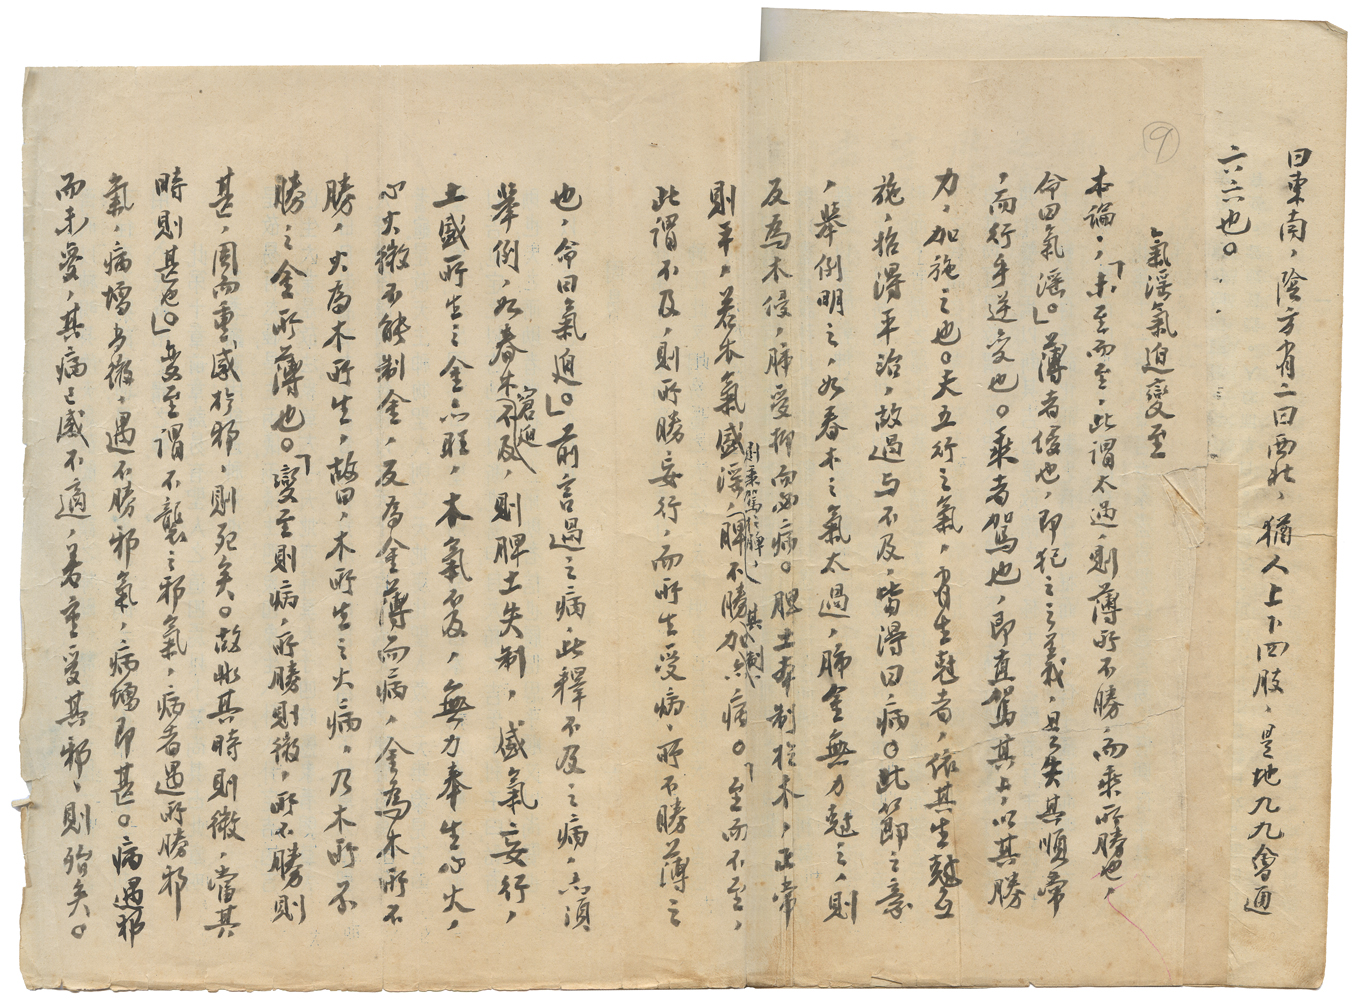 曰東南，陰方有二曰西北，猶人上下四肢，是地九九會通
六六也。
⑨
氣淫氣迫變至
本論，「未至而至，此謂太過，則薄所不勝，而乘所勝也，
命曰氣淫」。薄者侵也，即犯之之義，是失其順常
，而行乎逆變也。乘者駕也，即直駕其上，以其勝
力，加施之也。夫五行之氣，有生尅者，依其生尅互
施，始得平治，故過与不及，皆得曰病。此節之意
，舉例明之，如春木之氣太過，肺金無力尅之，則
反為木侵，肺受抑而病。脾土本制於木，正常
則平，若木氣盛淫，則乘駕於脾，脾不勝其制加，亦病。「至而不至，
此謂不及，則所勝妄行，而所生受病，所不勝薄之
也，命曰氣迫。」前言過之病，此釋不及之病，亦須
舉例，如春木窘迫不及，則脾土失制，盛氣妄行，
土盛所生之金亦旺，木氣不及，無力奉生心火，
心火微不能制金，反為金薄而病，金為木所不
勝，火為木所生，故曰，木所生之火病，乃木所不
勝之金所薄也。「變至則病，所勝則微，所不勝則
甚，因而重感於邪，則死矣。故非其時則微，當其
時則甚也」。變至謂不襲之邪氣，病者遇所勝邪
氣，病增為微，遇不勝邪氣，病增即甚。病遇邪
而未愛，其病已感不適，若重受其邪，則殆矣。